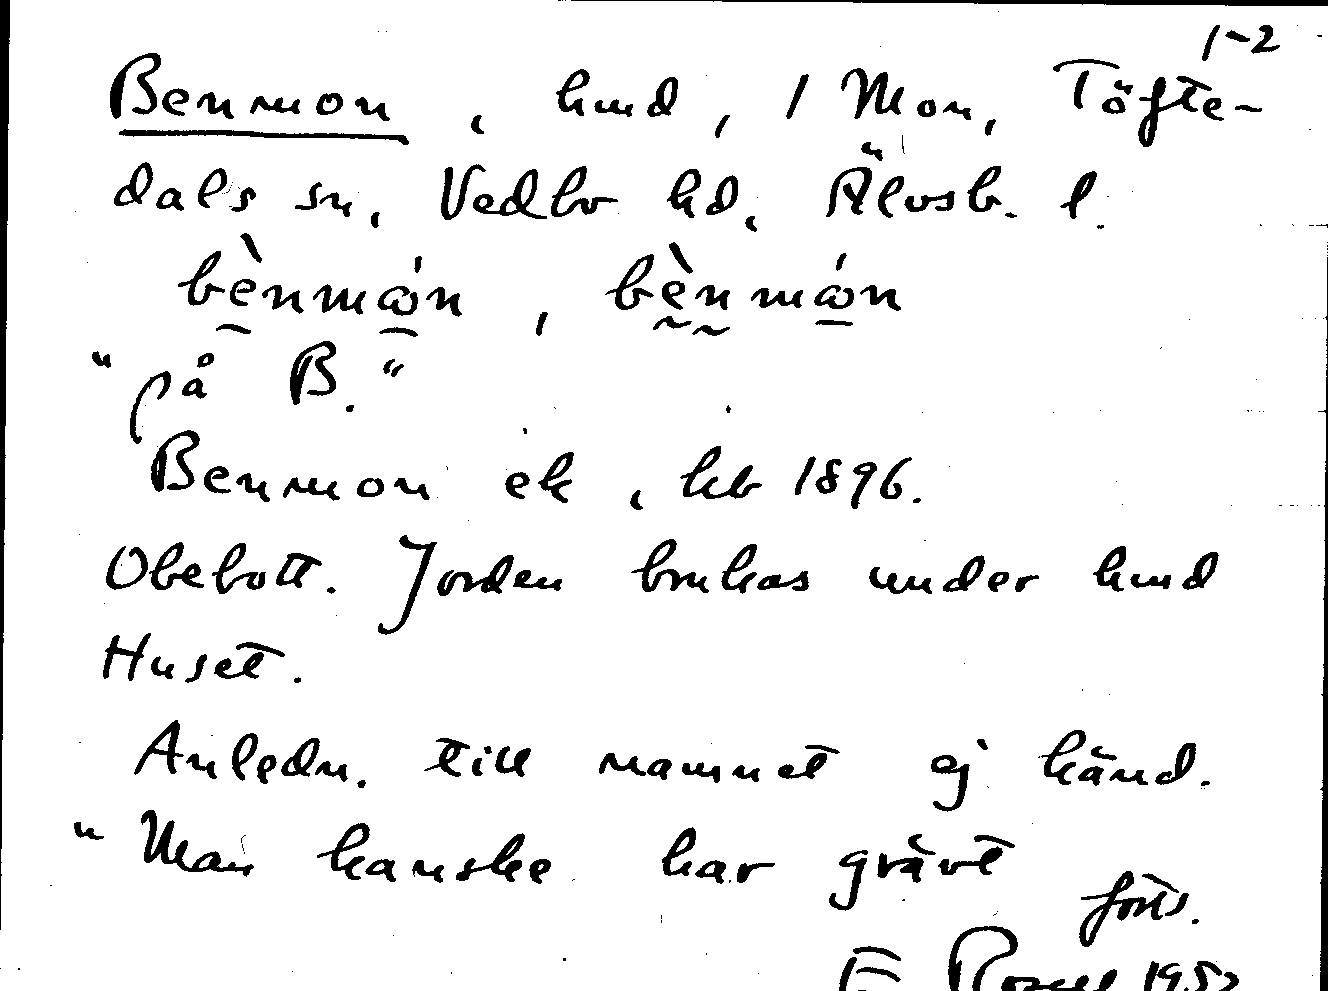 1-2
Benmon, hmd, 1 Mon, Töfte-
dals sn, Vedbo hd, Älvsb. l.
bènmón, bènmón
"på B."
Benmon ek, kb 1896.
Obebott. Jorden brukas under hmd
Huset.
Anledn. till namnet ej känd.
"Man kanske har grävt
forts.
1952